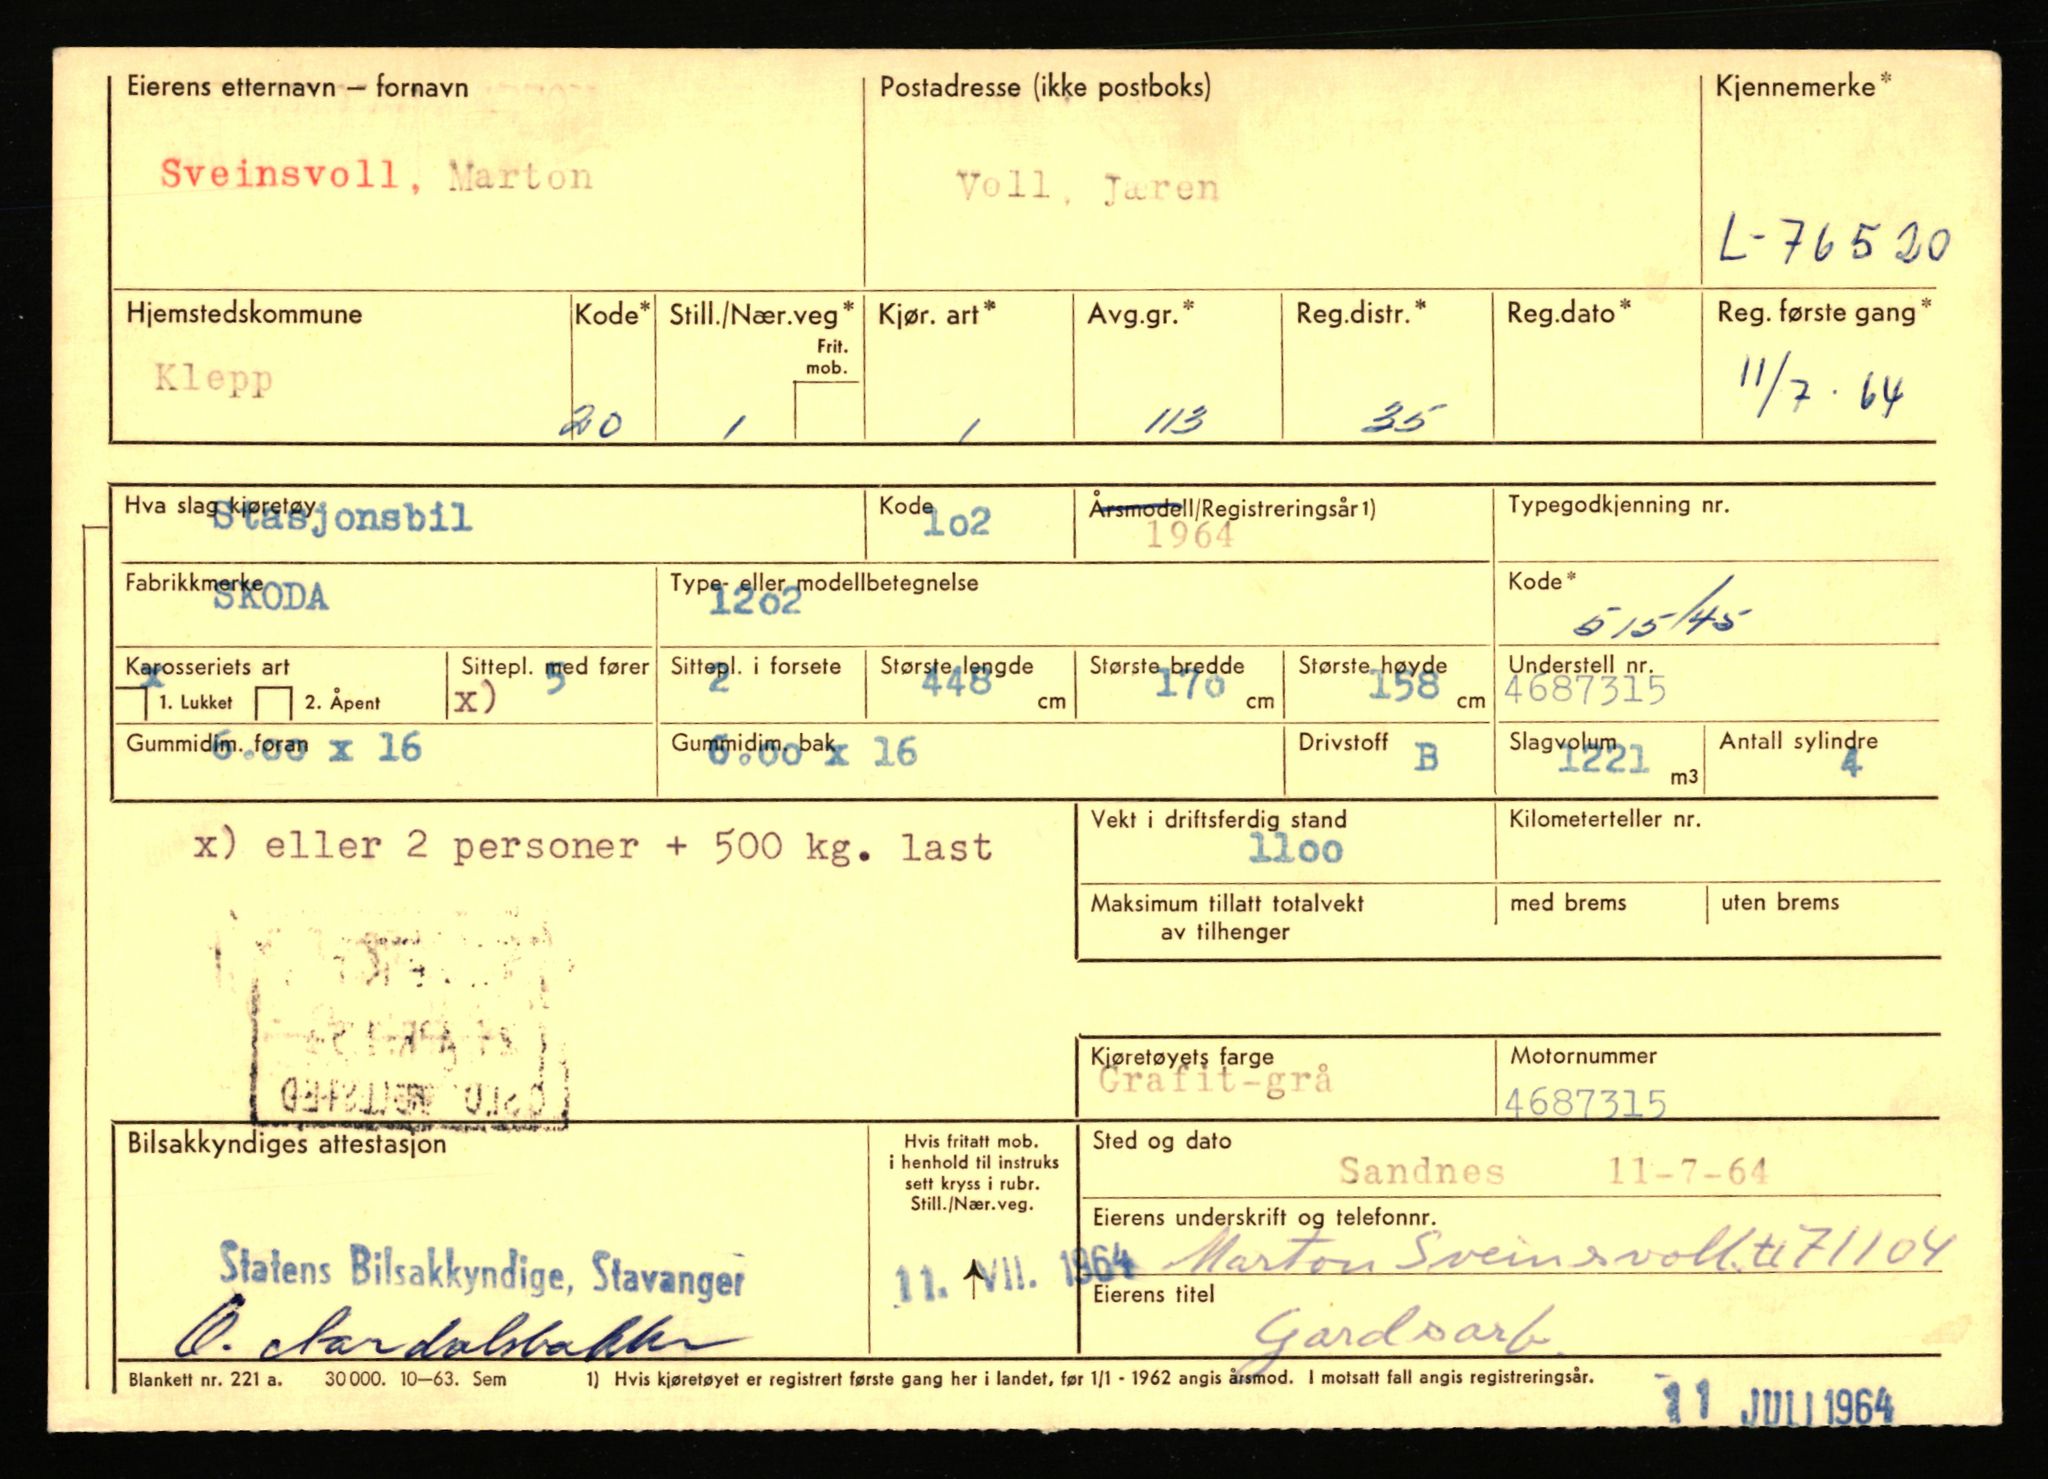 Eierens etternavn — fornavn
Postadresse (ikke postboks)
Kjennemerke*
Sveinsvoll, Marton
Voll, Jæren
L-76520
Hjemstedskommune
Kode*
Still./Nær.veg*
Frit.
mob.
Kjør. art*
Avg.gr.*
Reg.distr.*
Reg.dato*
Reg. første gang*
Klepp
20
1
1
113
35
11/7 . 64
Hva slag kjøretøy
Stasjonsbil
Kode
1o2
Årsmodell/Registreringsår 1)
1964
Typegodkjenning nr.
Fabrikkmerke
SKODA
Type- eller modellbetegnelse
12o2
Kode*
515/45
Karosseriets art
x
1. Lukket
2. Åpent
Sittepl. med fører
x) 5
Sittepl. i forsete
2
Største lengde
448 cm
Største bredde
17o cm
Største høyde
158 cm
Understell nr.
4687315
Gummidim. foran
6.oo x 16
Gummidim. bak
6.oo x 16
Drivstoff
B
Slagvolum
1221 m3
Antall sylindre
4
x) eller 2 personer + 500 kg. last
Vekt i driftsferdig stand
11oo
Kilometerteller nr.
Maksimum tillatt totalvekt
av tilhenger
med brems
uten brems
Kjøretøyets farge
Grafit-grå
Motornummer
4687315
Bilsakkyndiges attestasjon
Hvis fritatt mob.
i henhold til instruks
sett kryss i rubr.
Still./Nær.veg.
Sted og dato
Sandnes 11-7-64
Eierens underskrift og telefonnr.
Marton Sveinsvoll. tl 71104
Statens Bilsakkyndige, Stavanger
11. VII. 1964
Eierens titel
Gardsarb.
Blankett nr. 221 a. 30 000. 10—63. Sem
1) Hvis kjøretøyet er registrert første gang her i landet, før 1/1 - 1962 angis årsmod. I motsatt fall angis registreringsår.
11 JULI 1964